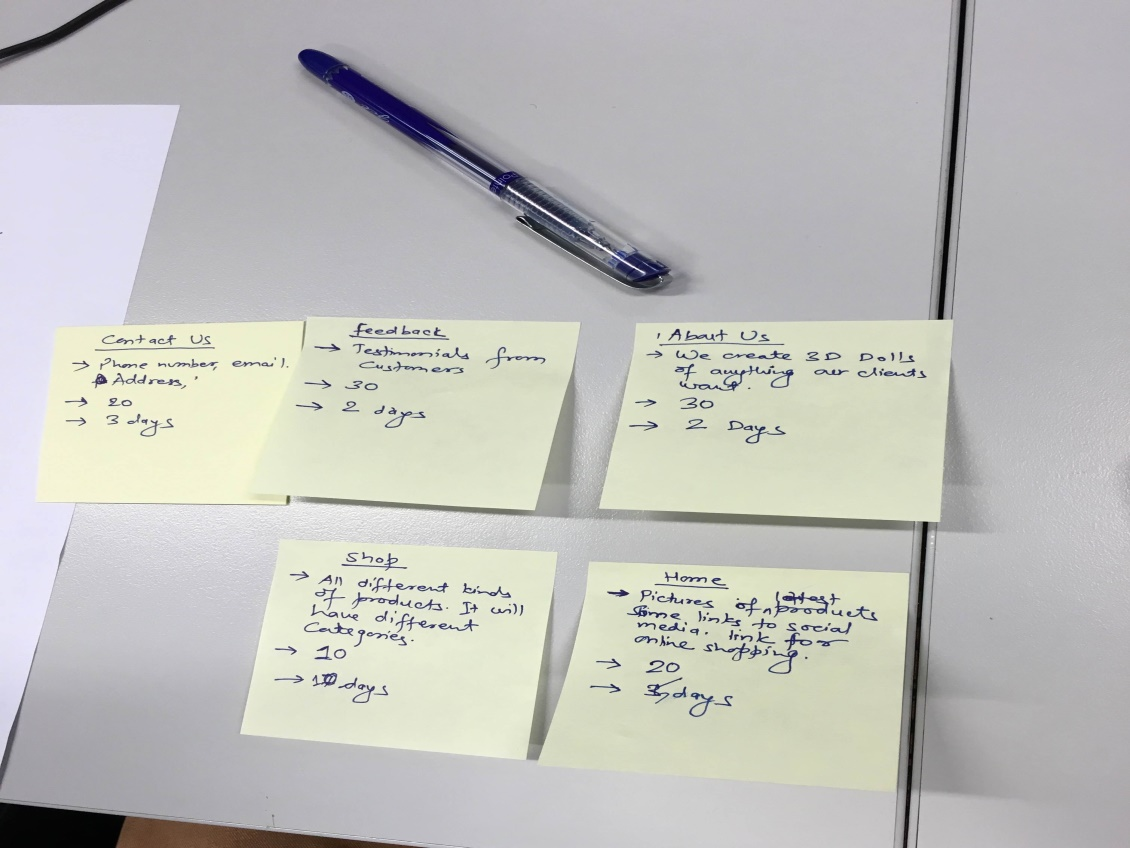 Contact Us
→ Phone number, email.
Address,
→ 20
→ 3 days
Feedback
→ Testimonials from
Customers
→ 30
→ 2 days
About Us
→ We create 3D Dolls
of anything our clients
want.
→ 30
→ 2 Days
Shop
→ All different kinds
of products. It will
have different
Categories.
→ 10
→ days
Home
→ Pictures of latest products
Some links to social
media. link for
online shopping.
→ 20
→ days